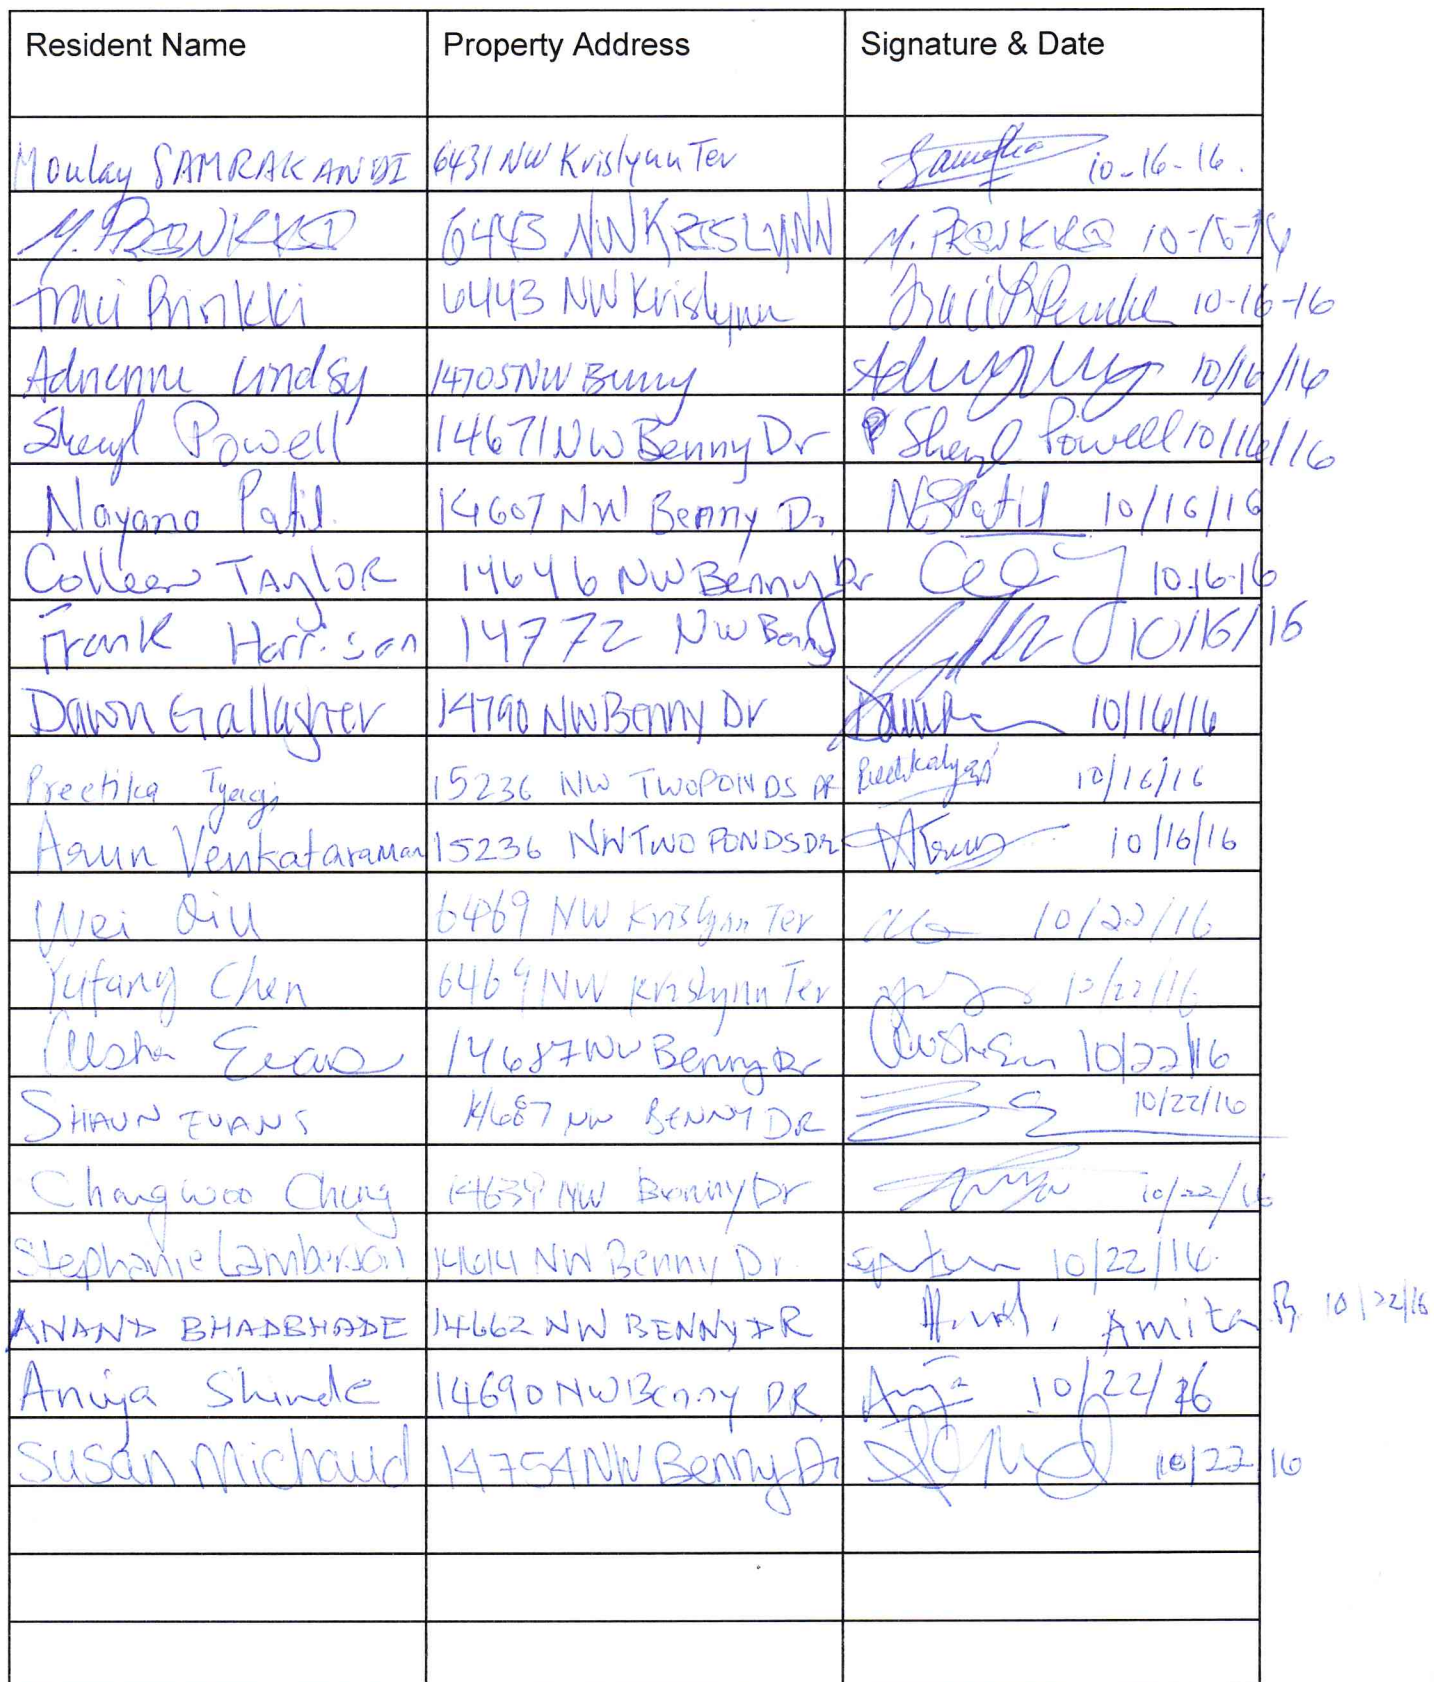 Resident Name Property Address Signature & Date
Moulay SAMRAKANDI 6431 NW Krislynn Ter 10-16-16.
M. PRINKKI 6443 NW KRISLYNN M. PRINKKI 10-16-16
Traci Prinkki 6443 NW Krislynn 10-16-16
Adrienne Lindsy 14705 NW Benny 10/16/16
Sheryl Powell 14671 NW Benny Dr Sheryl Powell 10/16/16
Nayana Patil 14607 NW Benny Dr. NSPatil 10/16/16
Colleen TAylOR 14646 NW Benny Dr 10-16-16
Frank Harrison 14772 NW Benny 10/16/16
Dawn Gallagher 14790 NW Benny Dr 10/16/16
Preetika Tyagi 15236 NW TWOPONDS DR 10/16/16
Arun Venkataraman 15236 NW TWO PONDS DR 10/16/16
Wei Qiu 6469 NW Krislynn Ter 10/22/16
Yufang Chen 6469 NW Krislynn Ter 10/22/16
Evans 14687 NW Benny Dr 10/22/16
SHAUN EVANS 14687 NW BENNY DR 10/22/16
Changwoo Chung 14639 NW Benny Dr 10/22/16
Stephanie Lamberson 14614 NW Benny Dr. 10/22/16
ANAND BHADBHADE 14662 NW BENNY DR Amita B. 10/22/16
Anuja Shinde 14690 NW Benny DR. 10/22/16
Susan Michaud 14754 NW Benny Dr 10/22/16